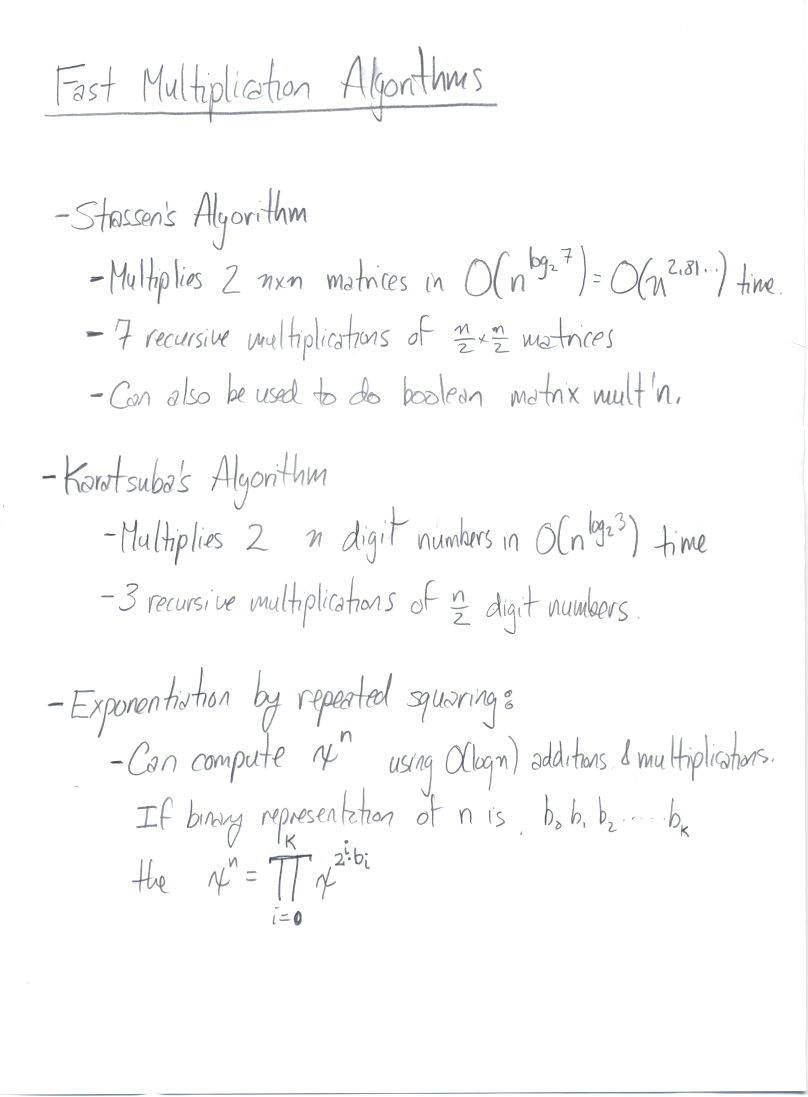 Fast Multiplication Algorithms
- Strassen's Algorithm
- Multiplies 2 n×n matrices in O(n^{log₂7}) = O(n^{2.81...}) time.
- 7 recursive multiplications of n/2 × n/2 matrices
- Can also be used to do boolean matrix mult'n.
- Karatsuba's Algorithm
- Multiplies 2 n digit numbers in O(n^{log₂3}) time
- 3 recursive multiplications of n/2 digit numbers.
- Exponentiation by repeated squaring:
- Can compute x^n using O(log n) additions & multiplications.
If binary representation of n is b₀ b₁ b₂ ..... b_k
the x^n = ∏_{i=0}^{K} x^{2^i·b_i}